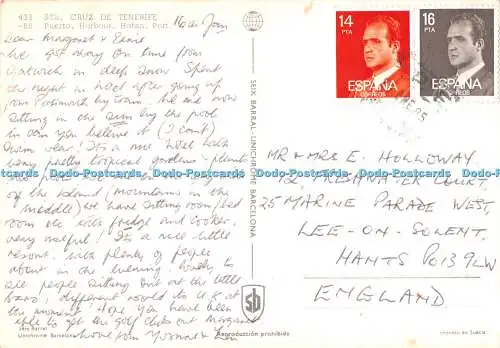 433 STA. CRUZ DE TENERIFE
-85 Puerto, Harbour, Hafen, Port
16th Jan
Dear Margaret & Ernie
We got away on time from
in deep snow. Spent
the night in hotel after going up
from Portsmouth by train. We are now
sitting in the sun by the pool
in can you believe it (I can't)
swim wear! It's a nice hotel with
very pretty tropical gardens - plants
of the island (mountains in the
middle) we have sitting room/bed
room etc with fridge and cooker.
very useful! It's a nice little
resort. with plenty of people
about in the evening. lovely to
see people sitting out at the little
bars, different world to U.K at
the moment! Hope you have been
able to get the golf clubs out Margaret
love from Yvonne & Len
SEIX BARRAL-UNICHROME BARCELONA
sb
Seix Barral
Unichrome Barcelona
Reproducción prohibida
14
PTA
ESPAÑA
CORREOS
16
PTA
ESPAÑA
CORREOS
MR & MRS E. HOLLOWAY
12, COURT,
25 MARINE PARADE WEST,
LEE-ON-SOLENT,
HANTS PO13 9LW
ENGLAND
www.hippostcard.com